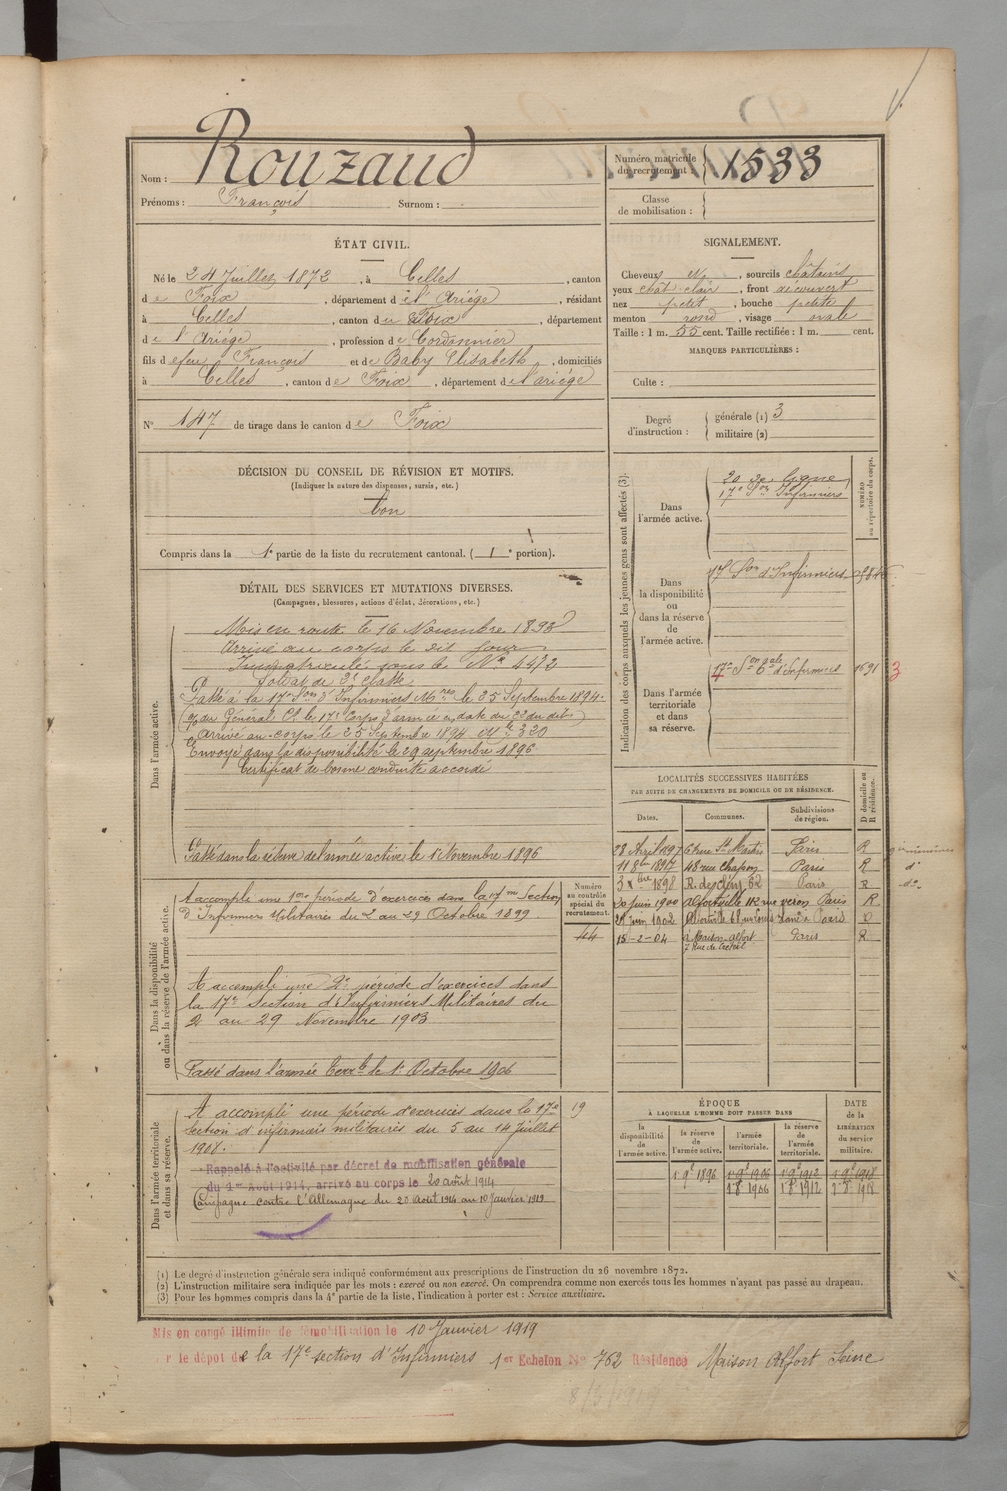 Nom : Rouzaud
Prénoms : François Surnom :
Numéro matricule du recrutement : 1533
Classe de mobilisation :
ÉTAT CIVIL.
Né le 24 Juillet 1872, à Celles, canton
de Foix, département de l'Ariège, résidant
à Celles, canton de Foix, département
de l'Ariège, profession de Cordonnier
fils de feu François et de Baby Elisabeth, domiciliés
à Celles, canton de Foix, département de l'ariège
N° 147 de tirage dans le canton de Foix
SIGNALEMENT.
Cheveux N, sourcils châtains
yeux chât-clair, front découvert
nez petit, bouche petite
menton rond, visage ovale
Taille : 1 m. 55 cent. Taille rectifiée : 1 m. cent.
MARQUES PARTICULIÈRES :
Culte :
Degré d'instruction : générale (1) 3
militaire (2)
DÉCISION DU CONSEIL DE RÉVISION ET MOTIFS.
(Indiquer la nature des dispenses, sursis, etc.)
bon
Compris dans la 1e partie de la liste du recrutement cantonal. (1e portion).
DÉTAIL DES SERVICES ET MUTATIONS DIVERSES.
(Campagnes, blessures, actions d'éclat, décorations, etc.)
Dans l'armée active.
Mis en route le 16 Novembre 1893
Arrivé au corps le dit jour
Immatriculé sous le N° 4472
Soldat de 2e classe
Passé à la 17e Son d'Infirmiers Mres le 25 Septembre 1894.
du Général Ct le 17e Corps d'armée en date du 22 du dit
Arrivé au corps le 25 Septembre 1894 Mle 320
Envoyé dans la disponibilité le 29 septembre 1896
Certificat de bonne conduite accordé
Passé dans la réserve de l'armée active le 1r Novembre 1896
Dans la disponibilité ou dans la réserve de l'armée active.
A accompli une 1re période d'exercices dans la 17me Section
d'Infirmiers Militaires du 2 au 29 Octobre 1899
A accompli une 2e période d'exercices dans
la 17e Section d'Infirmiers Militaires du
2 au 29 Novembre 1903
Passé dans l'armée Terrle le 1r Octobre 1906
Numéro au contrôle spécial du recrutement.
44
Dans l'armée territoriale et dans sa réserve.
A accompli une période d'exercices dans la 17e
section d'infirmiers militaires du 5 au 14 Juillet
1908.
19
Rappelé à l'activité par décret de mobilisation générale
du 1er Août 1914, arrivé au corps le 20 août 1914
Campagne contre l'Allemagne du 20 Août 1914 au 10 Janvier 1919
Indication des corps auxquels les jeunes gens sont affectés (3).
NUMÉRO au répertoire du corps.
Dans l'armée active.
20 de ligne
17e Son Infirmiers
Dans la disponibilité ou dans la réserve de l'armée active.
17 Son d'Infirmiers
Dans l'armée territoriale et dans sa réserve.
17e Son d'Infirmiers 1591 3
LOCALITÉS SUCCESSIVES HABITÉES
PAR SUITE DE CHANGEMENTS DE DOMICILE OU DE RÉSIDENCE.
Dates. Communes. Subdivisions de région. D domicile ou R résidence.
28 Avril 1897 rue St Martin Paris R
11 8bre 1897 48 rue Chapon Paris R do
1898 R. des 62 Paris R do
20 juin 1900 Alfortville 112 rue veron Paris R
21 juin 1902 Alfortville 68 Paris
15-2-04 à Maison-Alfort Paris R
7 Rue de Créteil
ÉPOQUE
À LAQUELLE L'HOMME DOIT PASSER DANS
la disponibilité de l'armée active. la réserve de l'armée active. l'armée territoriale. la réserve de l'armée territoriale. DATE de la LIBÉRATION du service militaire.
1 9e 1896 1 9e 1906 1 9e 1912 1 9e 1918
1 8 1906 1 8 1912 1 8 1918
(1) Le degré d'instruction générale sera indiqué conformément aux prescriptions de l'instruction du 26 novembre 1872.
(2) L'instruction militaire sera indiquée par les mots : exercé ou non exercé. On comprendra comme non exercés tous les hommes n'ayant pas passé au drapeau.
(3) Pour les hommes compris dans la 4e partie de la liste, l'indication à porter est : Service auxiliaire.
Mis en congé illimité de démobilisation le 10 Janvier 1919
r le dépot de la 17e section d'Infirmiers 1er Echelon N° 762 Résidence Maison Alfort Seine